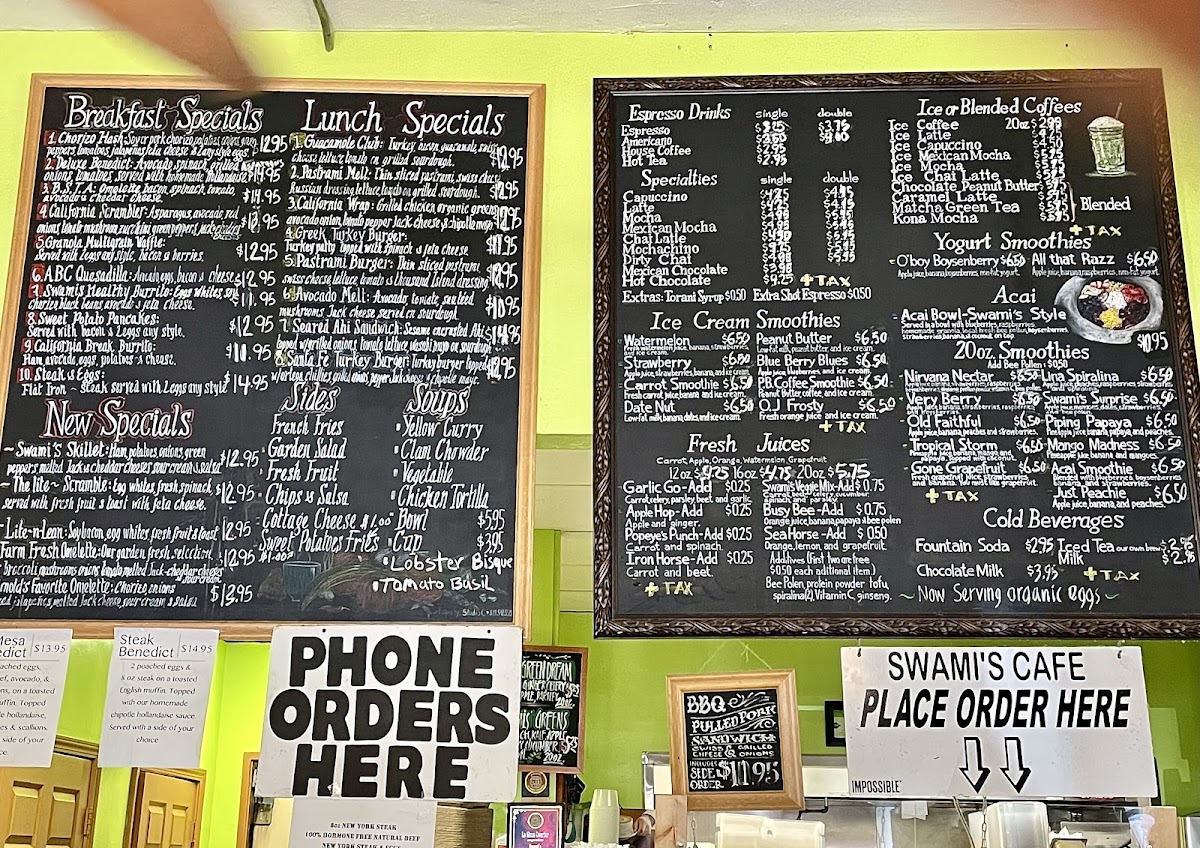 Breakfast Specials
1. Chorizo Hash: Soy or pork chorizo, potatoes, onions, green
peppers, tomatoes, jalapenos, feta cheese & 2 any style eggs. 12.95
2. Deluxe Benedict: Avocado, spinach, grilled
onions, tomatoes, served with homemade hollandaise $14.95
3. B.S.T.A. Omelette bacon, spinach, tomato,
avocado & cheddar cheese. $14.95
4. California Scrambler: Asparagus, avocado, red
onions, tomato, mushroom, zucchini, green peppers, jack cheddar $13.95
5. Granola Multigrain Waffle:
Served with eggs any style, bacon & berries. $12.95
6. ABC Quesadilla: Avocado, eggs, bacon & cheese $12.95
7. Swamis Healthy Burrito: Egg whites, soy
chorizo, black beans, avocado & feta cheese. $11.95
8. Sweet Potato Pancakes:
Served with bacon & 2 eggs any style. $12.95
9. California Break Burrito:
Ham, avocado, eggs, potatoes & cheese. $11.95
10. Steak & Eggs:
Flat Iron ~ steak served with 2 eggs any style $14.95
New Specials
~ Swami's Skillet: Ham, potatoes, onions, green
peppers, melted Jack & cheddar cheese, sour cream & salsa $12.95
~ The lite ~ Scramble: Egg whites, fresh spinach,
served with fresh fruit & toast with feta cheese. $12.95
-Lite-n-Lean: Soy bacon, egg whites, fresh fruit & toast 12.95
Farm Fresh Omelette: Our garden, fresh selection
broccoli, mushrooms, onions, tomato, melted Jack-cheddar cheese sour cream $12.95
Arnold's Favorite Omelette: Chorizo, onions
jalapeños, melted Jack cheese, sour cream & Salsa $13.95
Lunch Specials
1. Guacamole Club: Turkey, bacon, guacamole, swiss
cheese, lettuce, tomato on grilled sourdough. $12.95
2. Pastrami Melt: Thin sliced pastrami, swiss cheese,
Russian dressing, lettuce, tomato on grilled sourdough. $12.95
3. California Wrap: Grilled chicken, organic greens
avocado, onion, tomato, pepper Jack cheese & chipotle mayo $12.95
4. Greek Turkey Burger:
Turkey patty topped with spinach & feta cheese. $11.95
5. Pastrami Burger: Thin sliced pastrami,
swiss cheese, lettuce, tomato & thousand island dressing $12.95
6. Avocado Melt: Avocado, tomato, sautéed
mushrooms, Jack cheese served on sourdough. $10.95
7. Seared Ahi Sandwich: Sesame encrusted Ahi
topped w/ grilled onions, tomato, lettuce & wasabi mayo on sourdough $14.95
8. Santa Fe Turkey Burger: Turkey burger topped
w/ ortega chillies, grilled onions, pepper Jack cheese & chipotle mayo. $12.95
Sides
French Fries
Garden Salad
Fresh Fruit
Chips & Salsa
Cottage Cheese $1.00
Sweet Potatoes Fries
$1.50
Soups
• Yellow Curry
• Clam Chowder
• Vegetable
• Chicken Tortilla
• Bowl $5.95
• Cup $3.95
• Lobster Bisque
• Tomato Basil
Espresso Drinks single double
Espresso $3.25 $3.75
Americano
House Coffee $2.95
Hot Tea $2.95
Specialties single double
Capuccino
Latte
Mocha
Mexican Mocha
Chai Latte
Mochachino
Dirty Chai
Mexican Chocolate
Hot Chocolate
+ TAX
Extras: Torani Syrup $0.50 Extra Shot Espresso $0.50
Ice Cream Smoothies
Watermelon $6.50
Fresh watermelon, banana, strawberries,
and ice cream.
Strawberry $6.50
Apple juice, strawberries, banana, and ice cream.
Carrot Smoothie $6.50
Fresh carrot juice, banana, and ice cream.
Date Nut $6.50
Low-fat milk, banana, dates, and ice cream.
Peanut Butter $6.50
Low-fat milk, peanut butter, and ice cream.
Blue Berry Blues $6.50
Apple juice, blueberries, and ice cream.
P.B. Coffee Smoothie $6.50
Peanut butter, coffee, and ice cream.
O.J. Frosty $6.50
Fresh orange juice and ice cream.
+ TAX
Fresh Juices
Carrot, Apple, Orange, Watermelon, Grapefruit
12oz $4.75 16oz $4.75 20oz $5.75
Garlic Go-Add $0.25
Carrot, celery, parsley, beet, and garlic.
Apple Hop-Add $0.25
Apple and ginger.
Popeye's Punch-Add $0.25
Carrot and spinach.
Iron Horse-Add $0.25
Carrot and beet.
+ TAX
Swami's Veggie Mix-Add $0.75
Carrot, beet, celery, cucumber,
spinach, and parsley.
Busy Bee-Add $0.75
Orange juice, banana, papaya & bee polen
Sea Horse-Add $0.50
Orange, lemon, and grapefruit.
Additives (First Two are free
$0.50 each aditional item.)
Bee Polen, protein powder, tofu,
spiralina(2), Vitamin C, ginseng.
Ice or Blended Coffees
Ice Coffee 20oz $2.99
Ice Latte
Ice Capuccino $4.50
Ice Mexican Mocha
Ice Mocha
Ice Chai Latte
Chocolate Peanut Butter
Caramel Latte
Matcha Green Tea
Kona Mocha
Blended
+ TAX
Yogurt Smoothies
O'boy Boysenberry $6.50
Apple juice, banana, boysenberries, non-fat yogurt.
All that Razz $6.50
Apple juice, banana, raspberries, non-fat yogurt.
Acai
Acai Bowl-Swami's Style
Served in a bowl with blueberries, raspberries,
homemade granola, local fresh bee pollen, boysenberries,
strawberries, banana, & coconut on top $10.95
20oz. Smoothies
Add Bee Pollen $0.50
Nirvana Nectar $6.50
Very Berry $6.50
Old Faithful $6.50
Apple juice, banana, peaches and strawberries.
Tropical Storm $6.50
Pineapple juice, banana, mango, and
papaya, topped with coconut.
Gone Grapefruit $6.50
Fresh grapefruit juice, strawberries,
and banana. You must like grapefruit.
+ TAX
Lina Spiralina $6.50
Apple juice, peaches, raspberries, strawberries,
Swami's Surprise $6.50
Apple juice, mangoes, dates, strawberries,
Piping Papaya $6.50
Pineapple juice, banana, papaya, and peaches.
Mango Madness $6.50
Pineapple juice, banana and mangoes.
Acai Smoothie $6.50
Blended with blueberries, boysenberries,
banana, and strawberries.
Just Peachie $6.50
Apple juice, banana, and peaches.
Cold Beverages
Fountain Soda $2.95
Iced Tea our own brew $2.95
Chocolate Milk $3.95
Milk $2.95
+ TAX
~ Now Serving organic eggs ~
Mesa
Benedict $13.95
poached eggs,
beef, avocado, &
onions, on a toasted
muffin. Topped
hollandaise,
es & scallions.
side of your
Steak
Benedict $14.95
2 poached eggs &
8 oz steak on a toasted
English muffin. Topped
with our homemade
chipotle hollandaise sauce.
Served with a side of your
choice
PHONE
ORDERS
HERE
GREEN DREAM
GINGER, CELERY
APPLE
20oz.
GREENS
KALE, APPLE
CUCUMBER
20oz.
BBQ
PULLED PORK
SANDWICH
SWISS & GRILLED
CHEESE & ONIONS
INCLUDES
SIDE
ORDER $11.95
SWAMI'S CAFE
PLACE ORDER HERE
IMPOSSIBLE
8oz NEW YORK STEAK
100% HORMONE FREE NATURAL BEEF
NEW YORK STEAK & EGGS